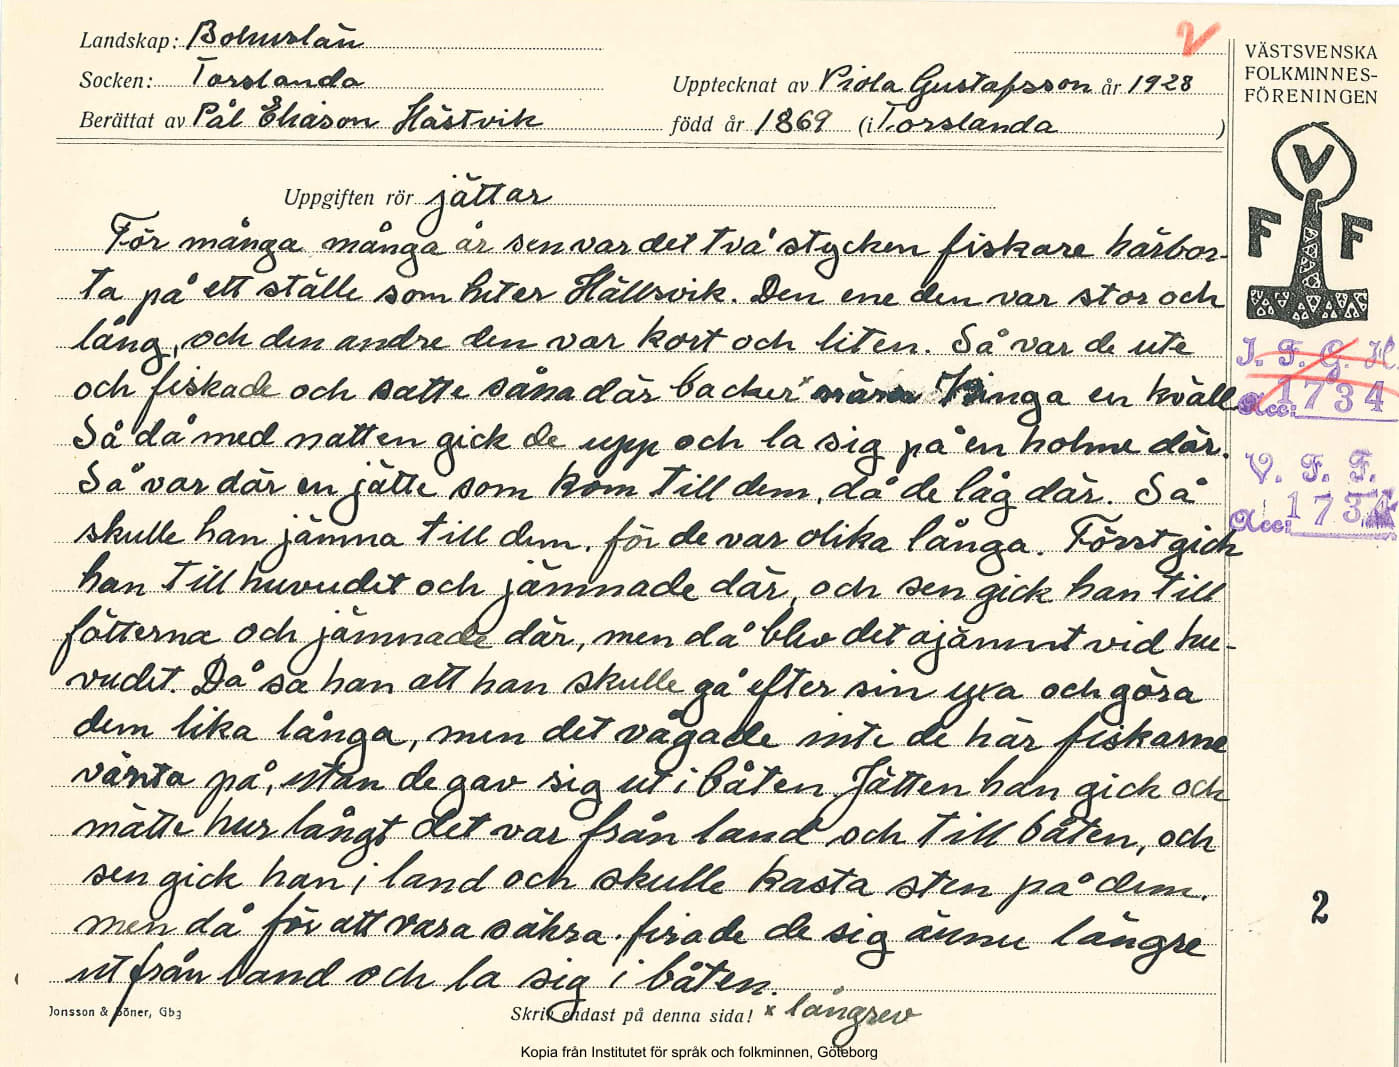 Landskap: Bohuslän
Socken: Torslanda
Berättat av Pål Eliason Hästvik
2
Upptecknat av Viola Gustafsson år 1928
född år 1869 (i Torslanda)
VÄSTSVENSKA
FOLKMINNES-
FÖRENINGEN
V
F F
Uppgiften rör jättar
För många många år sen var det två stycken fiskare härbor-
ta på ett ställe som heter Hällsvik. Den ene den var stor och
lång, och den andre den var kort och liten. Så var de ute
och fiskade och satte såna där backer x kringa en kväll
Så då med natten gick de upp och la sig på en holme där.
Så var där en jätte som kom till dem, då de låg där. Så
skulle han jämna till dem, för de var olika långa. Först gick
han till huvudet och jämnade där, och sen gick han till
fötterna och jämnade där, men då blev det ojämnt vid hu-
vudet. Då sa han att han skulle gå efter sin yxa och göra
dem lika långa, men det vågade inte de här fiskarne
vänta på, utan de gav sig ut i båten. Jätten han gick och
mätte hur långt det var från land och till båten, och
sen gick han i land och skulle kasta sten på dem.
men då för att vara säkra. firade de sig ännu längre
ut från land och la sig i båten.
I. F. G. H.
Acc: 1734
V. F. F.
Acc: 1734
2
Jonsson & Söner, Gbg
Skriv endast på denna sida!
x långrev
Kopia från Institutet för språk och folkminnen, Göteborg